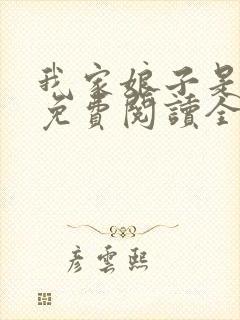 我家娘子是
免費閱讀全
彥雲熙